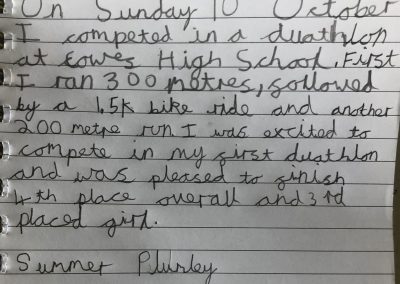 On Sunday 10 October
I competed in a duathlon
at Cowes High School. First
I ran 300 metres, followed
by a 1.5k bike ride and another
200 metre run I was excited to
compete in my first duathlon
and was pleased to finish
4th place overall and 3rd
placed girl.
Summer